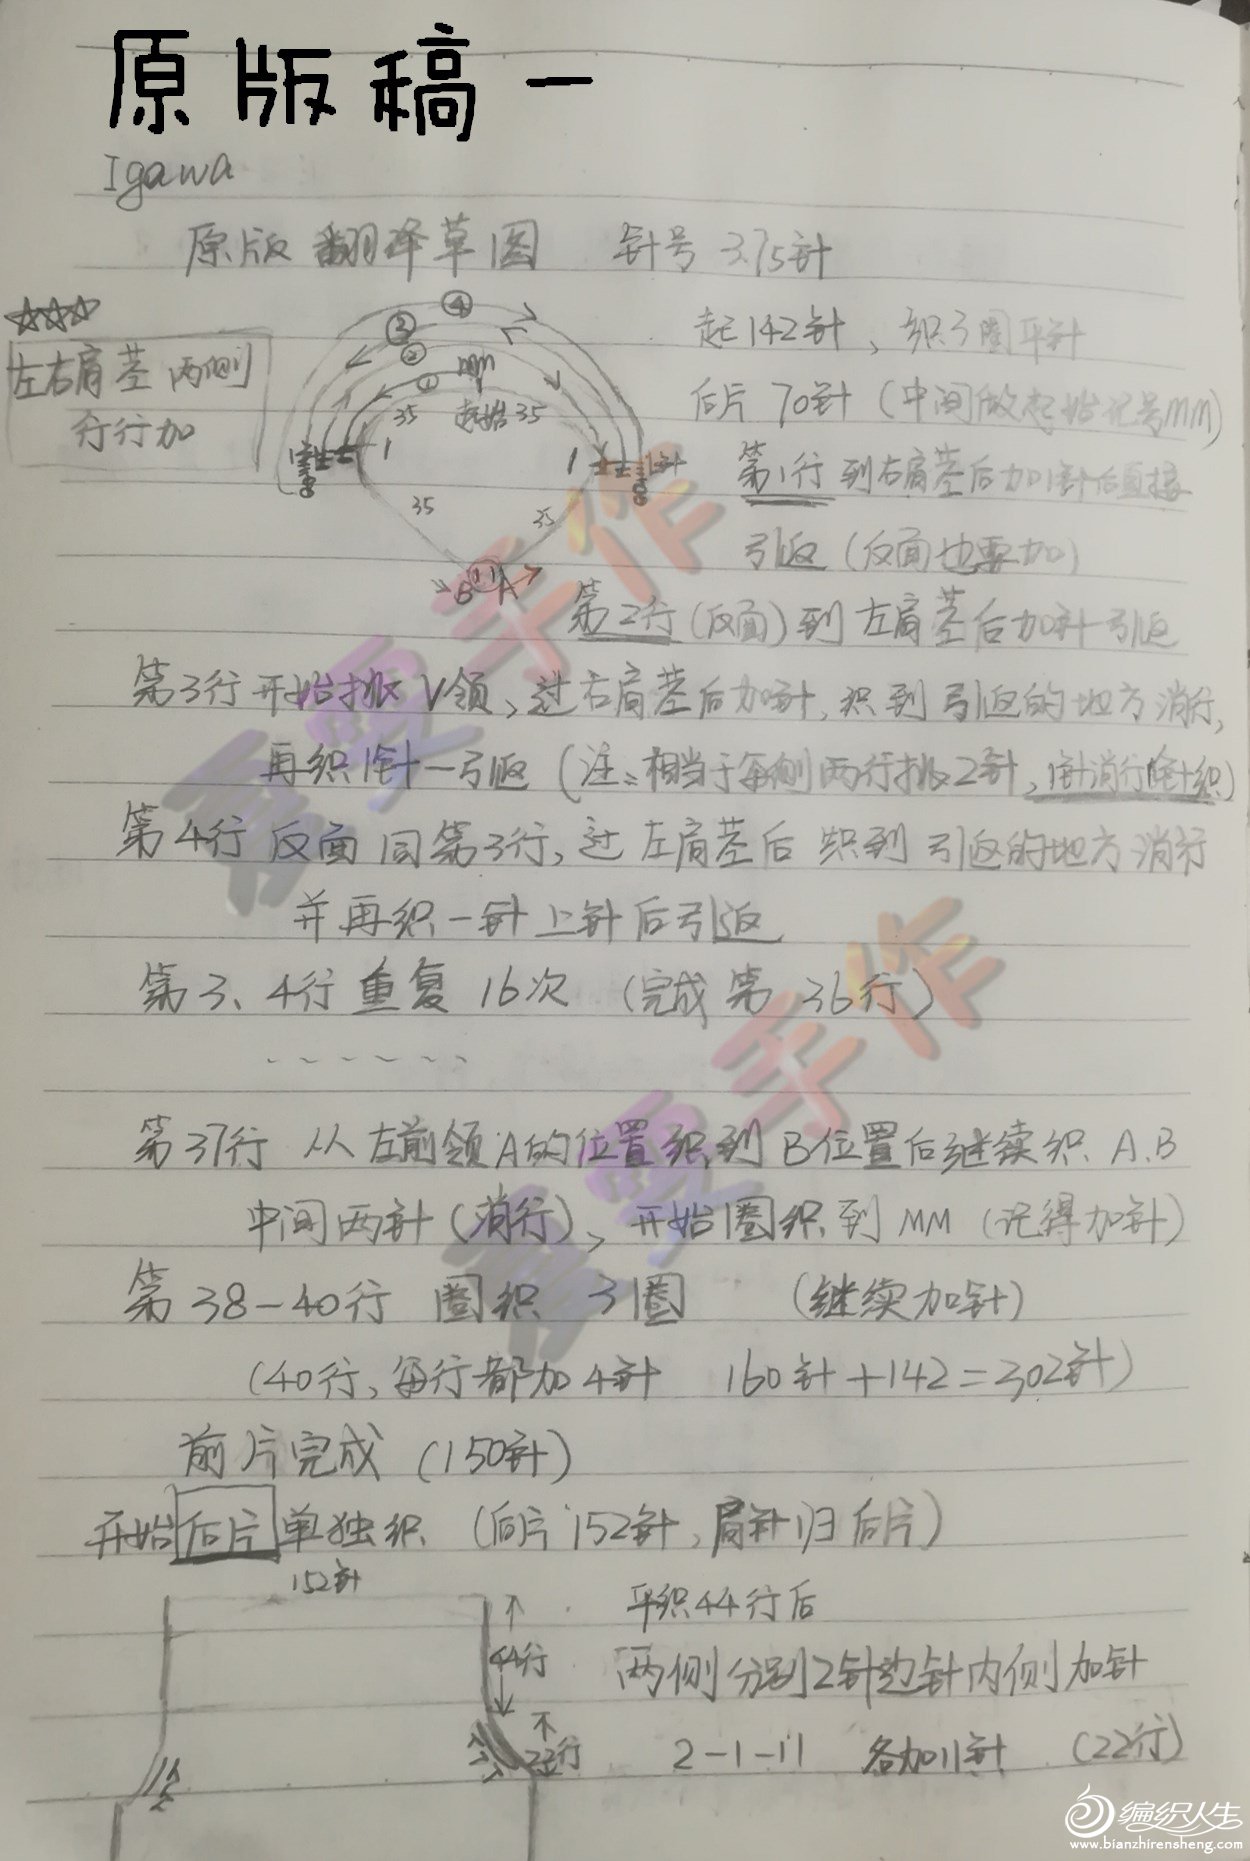 原版稿一
Igawa
原版翻译草图 针号 3.75针
☆☆☆
左右肩茎两侧
行行加
④
③
②
①
mm
35 起始 35
1 1
35 35
B A
起142针、织3圈平针
后片 70针 (中间做起始记号MM)
第1行 到右肩茎后加1针后直接
引返 (反面也要加)
第2行 (反面) 到左肩茎后加针引返
第3行 开始挑V领、过右肩茎后加针, 织到引返的地方消行,
再织1针一引返 (注: 相当于每侧两行挑2针, 1针消行1针织)
第4行 反面同第3行, 过左肩茎后 织到引返的地方消行
并再织一针上针后引返
第3、4行重复16次 (完成第36行)
第37行 从左前领A的位置织到B位置后继续织 A.B
中间两针 (消行), 开始圈织到MM (记得加针)
第38-40行 圈织 3圈 (继续加针)
(40行, 每行都加4针 160针+142=302针)
前片完成 (150针)
开始后片单独织 (后片152针, 肩针归后片)
152针
44行
22行
平织44行后
两侧分别2针边针内侧加针
2-1-11 各加11针 (22行)
夏手作
夏手作
编织人生
www.bianzhirensheng.com